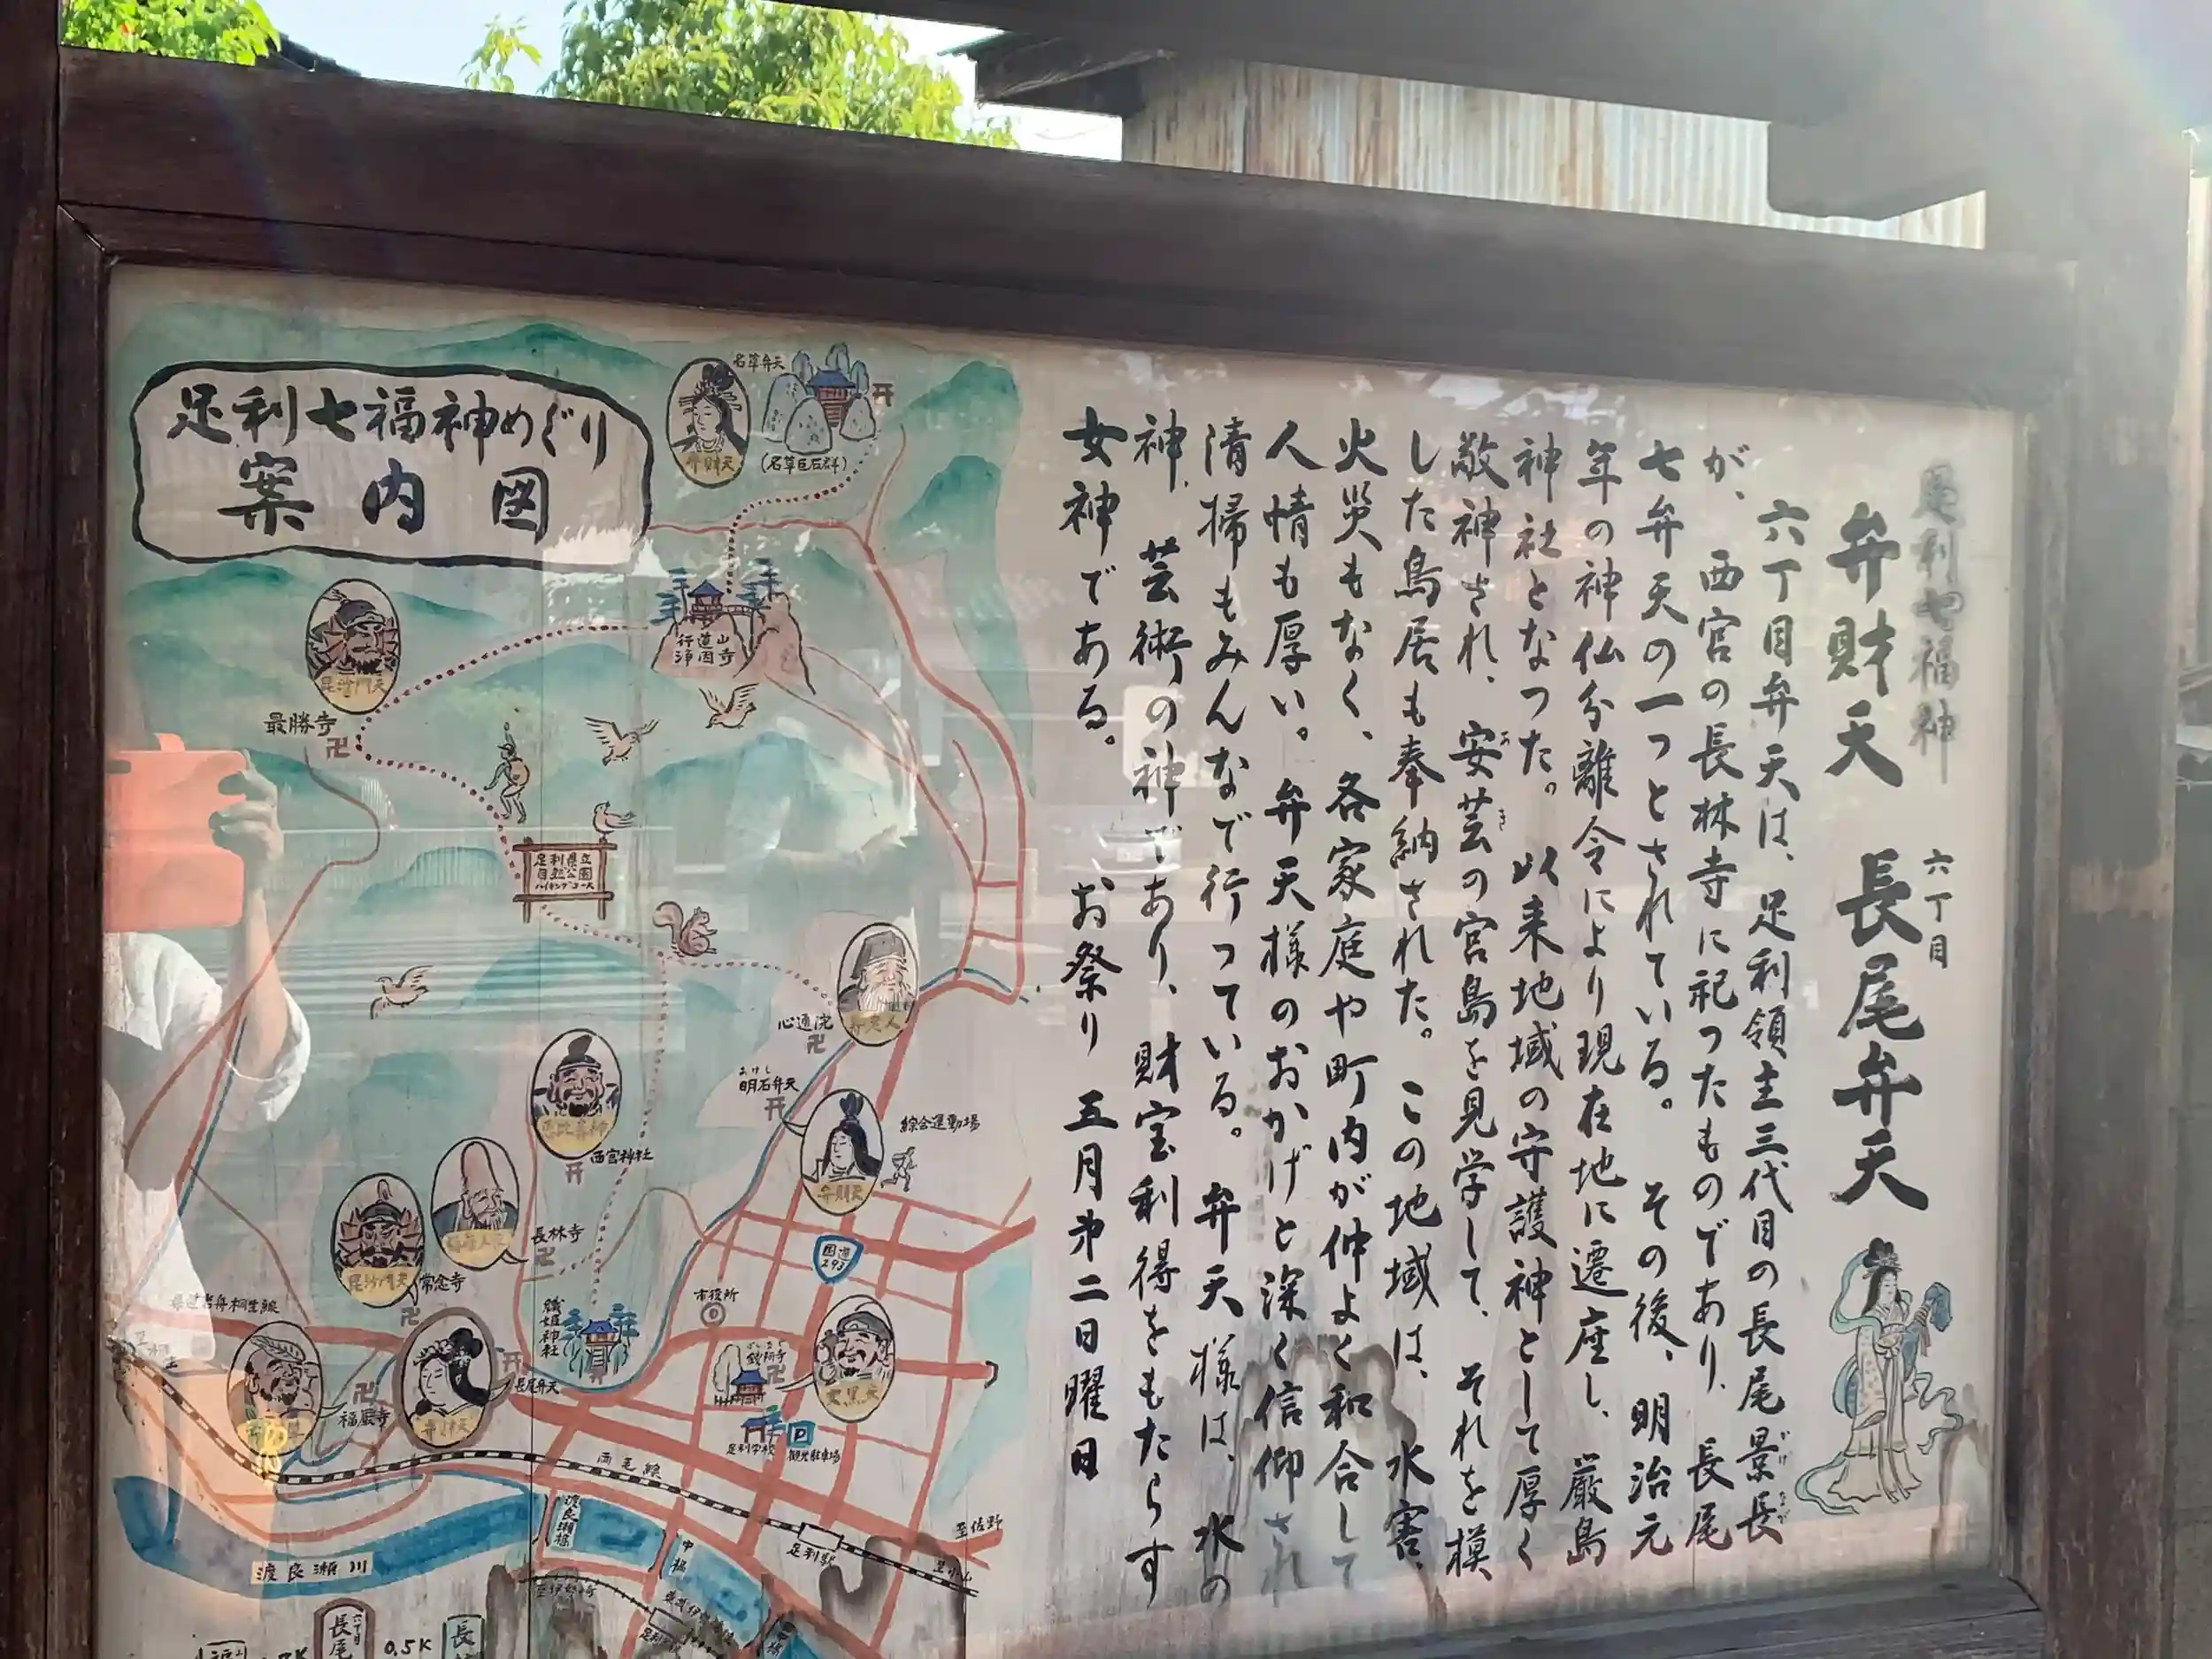 足利七福神
弁財天 長尾弁天
六丁目
六丁目弁天は、足利領主三代目の長尾景長
が、西宮の長林寺に祀ったものであり、長尾
七弁天の一つとされている。その後、明治元
年の神仏分離令により現在地に遷座し、厳島
神社となった。以来地域の守護神として厚く
敬神され、安芸の宮島を見学して、それを模
あき
した鳥居も奉納された。この地域は、水害、
火災もなく、各家庭や町内が仲よく和合して
人情も厚い。弁天様のおかげと深く信仰され
清掃もみんなで行っている。弁天様は、水の
神、芸術の神であり、財宝利得をもたらす
女神である。 お祭り 五月第二日曜日
足利七福神めぐり
案内図
名草弁天
弁財天
(名草巨石群)
行道山
浄因寺
毘沙門天
最勝寺
足利県立
自然公園
ハイキングコース
寿老人
心通院
あけし
明石弁天
弁財天
総合運動場
恵比寿神
西宮神社
長林寺
毘沙門天
常念寺
織姫神社
長尾弁天
弁財天
福厳寺
国道
293
市役所
大黒天
足利学校
P
観光駐車場
両毛線
渡良瀬橋
中橋
渡良瀬川
足利駅
至佐野
至小山
長尾
0.5K
長